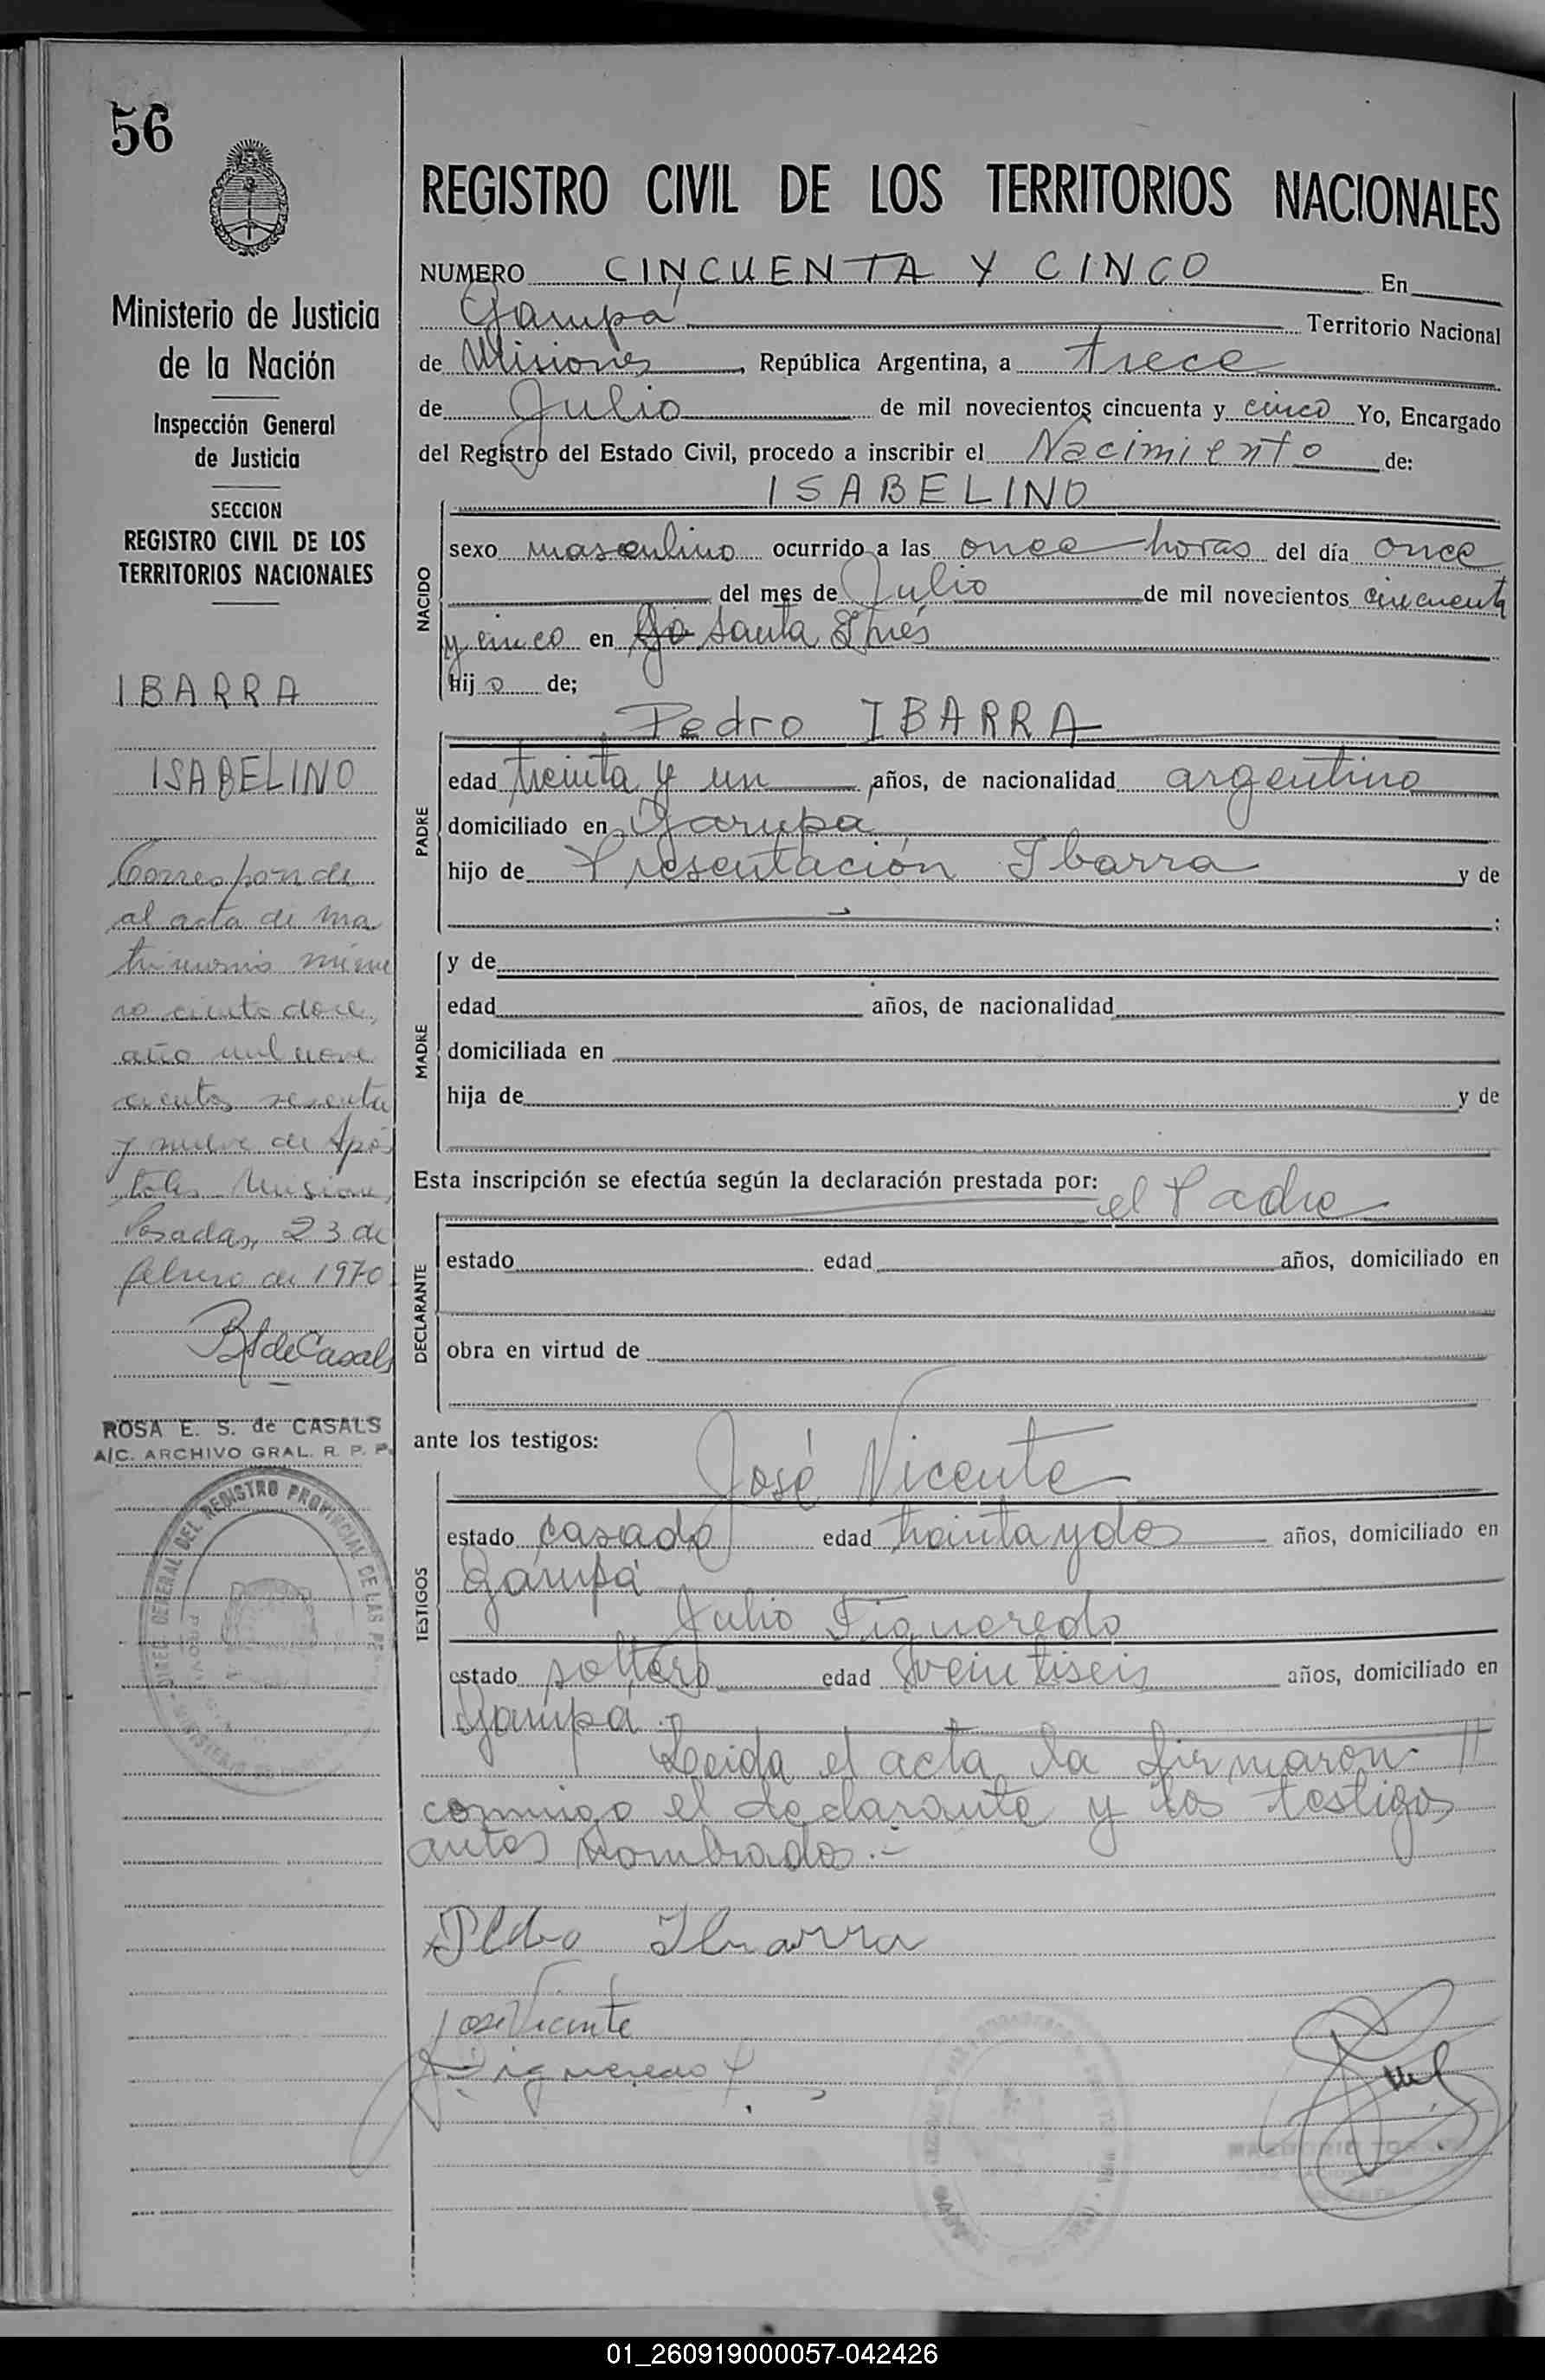 56
Ministerio de Justicia
de la Nación
Inspección General
de Justicia
SECCION
REGISTRO CIVIL DE LOS
TERRITORIOS NACIONALES
IBARRA
ISABELINO
Corresponde
al acta de ma
trimonio núme
ro ciento doce,
año mil nove
cientos sesenta
y nueve de Após
toles Misiones,
Posadas, 23 de
febrero de 1970
RSdeCasals
ROSA E. S. de CASALS
A/C. ARCHIVO GRAL. R. P. P.
DIREC. GENERAL DEL REGISTRO PROVINCIAL DE LAS PE
REGISTRO CIVIL DE LOS TERRITORIOS NACIONALES
NUMERO CINCUENTA Y CINCO En
Garupá Territorio Nacional
de Misiones, República Argentina, a trece
de Julio de mil novecientos cincuenta y cinco Yo, Encargado
del Registro del Estado Civil, procedo a inscribir el Nacimiento de:
ISABELINO
NACIDO
sexo masculino ocurrido a las once horas del día once
del mes de Julio de mil novecientos cincuenta
y cinco en Santa Inés
hijo de;
Pedro IBARRA
PADRE
edad treinta y un años, de nacionalidad argentino
domiciliado en Garupá
hijo de Presentación Ibarra y de
MADRE
y de
edad años, de nacionalidad
domiciliada en
hija de y de
Esta inscripción se efectúa según la declaración prestada por: el Padre
DECLARANTE
estado edad años, domiciliado en
obra en virtud de
ante los testigos:
José Vicente
TESTIGOS
estado casado edad treinta y dos años, domiciliado en
Garupá
Julio Figueredo
estado soltero edad veintiseis años, domiciliado en
Garupá.
Leida el acta la firmaron //
conmigo el declarante y los testigos
antes nombrados.-
Pedro Ibarra
Jose Vicente
J Figueredo
01_260919000057-042426